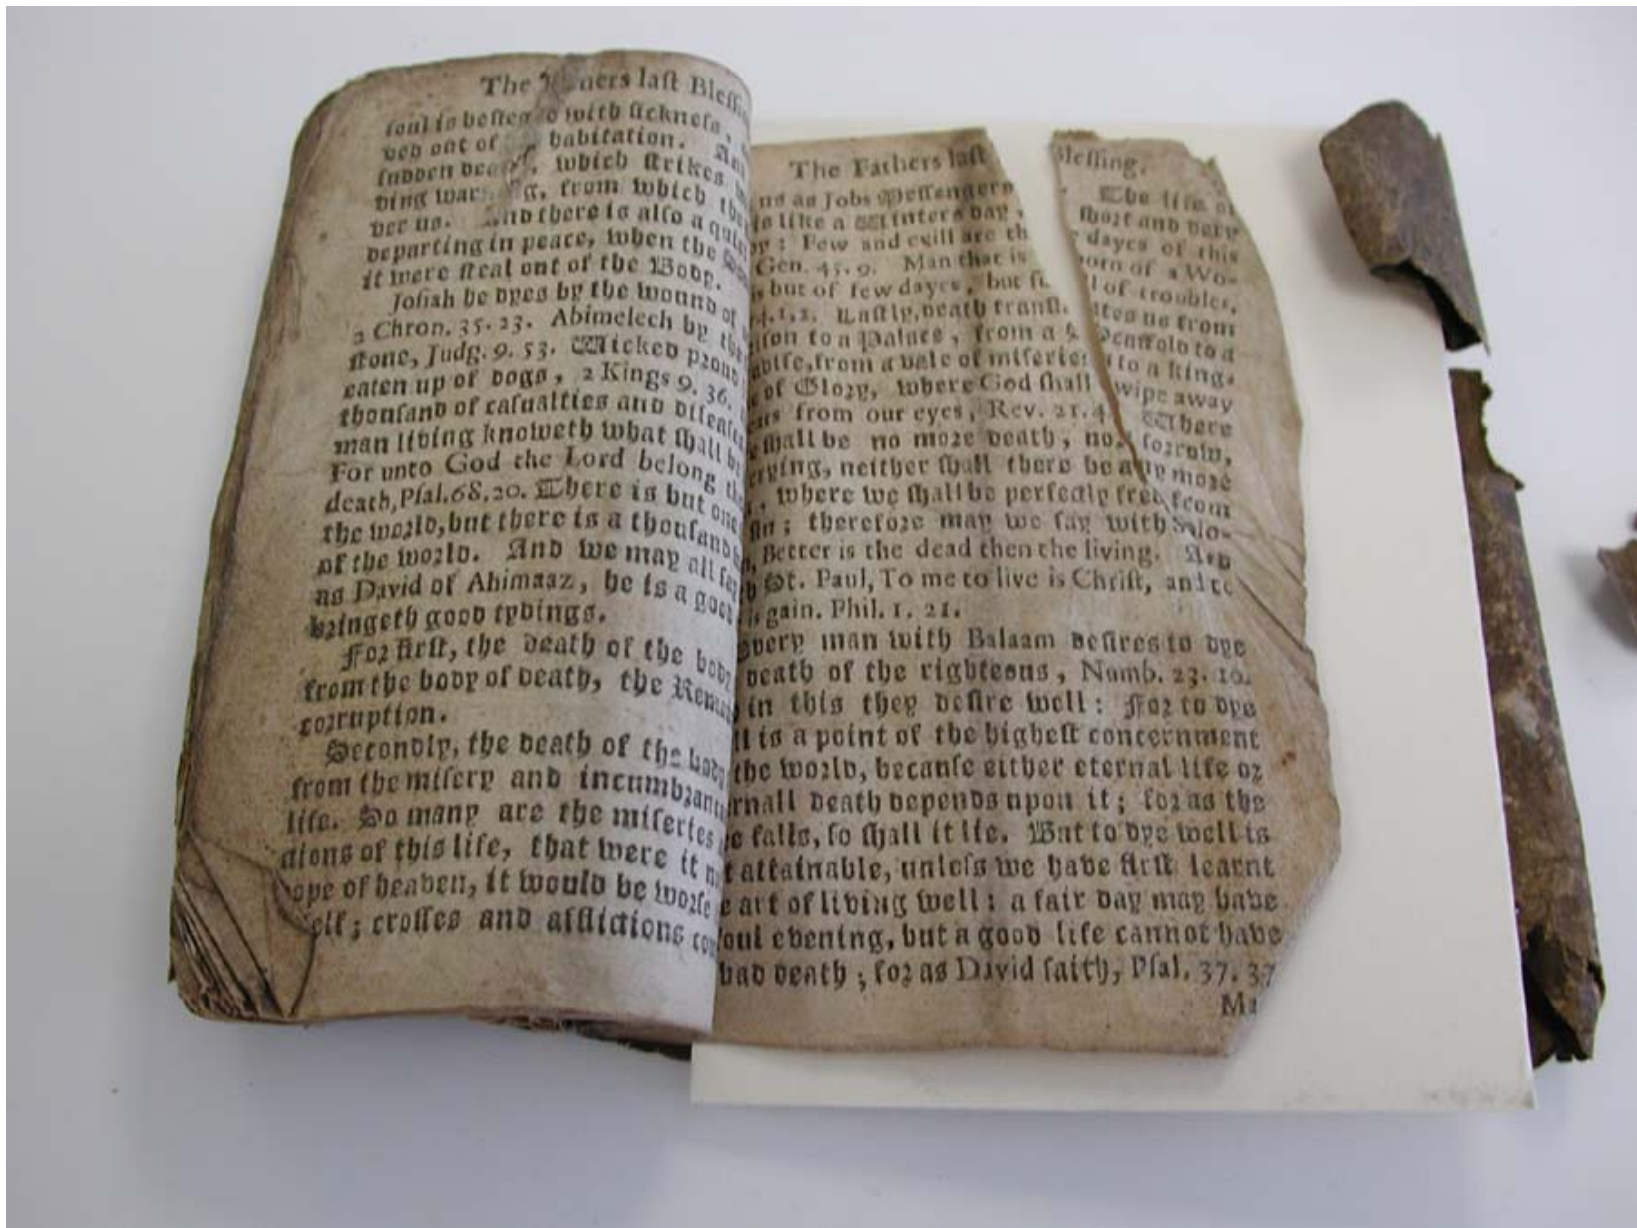 The Fathers last Blessi
soul is besieg with sickness,
ved out of habitation. And
sudden dea which strikes
ding war g, from which the
ver us. And there is also a quiet
departing in peace, when the
it were steal out of the Body.
Josiah he dyes by the wound of
2 Chron. 35. 23. Abimelech by the
stone, Judg. 9. 53. Wicked proud
eaten up of dogs, 2 Kings 9. 36.
thousand of casualties and diseases
man living knoweth what shall be
For unto God the Lord belong the
death, Psal. 68. 20. There is but one
the world, but there is a thousand
of the world. And we may all say
as David of Ahimaaz, he is a good
bringeth good tydings.
For first, the death of the body
from the body of death, the
corruption.
Secondly, the death of the body
from the misery and incumbran
life. So many are the miseries
ctions of this life, that were it n
ope of heaven, it would be worse
self; crosses and afflictions com
The Fathers last Blessing.
us as Jobs Messengers The life of
is like a Winters day, short and very
py: Few and evill are th dayes of this
Gen. 45. 9. Man that is born of a Wo-
is but of few dayes, but fu l of troubles,
4. 1, 2. Lastly, death transl ates us from
ison to a Palace, from a Scaffold to a
from a vale of miseries to a King-
of Glory, where God shall wipe away
ars from our eyes, Rev. 21. 4. Where
shall be no more death, nor sorrow,
crying, neither shall there be any more
, where we shall be perfectly free from
sin; therefore may we say with Salo-
Better is the dead then the living. And
St. Paul, To me to live is Christ, and to
is gain. Phil. 1. 21.
every man with Balaam desires to dye
death of the righteous, Numb. 23. 10.
in this they desire well: For to dye
ll is a point of the highest concernment
the world, because either eternal life or
ernall death depends upon it; for as the
ee falls, so shall it lie. But to dye well is
t attainable, unless we have first learnt
e art of living well: a fair day may have
foul evening, but a good life cannot have
bad death; for as David saith, Psal. 37. 37
Ma